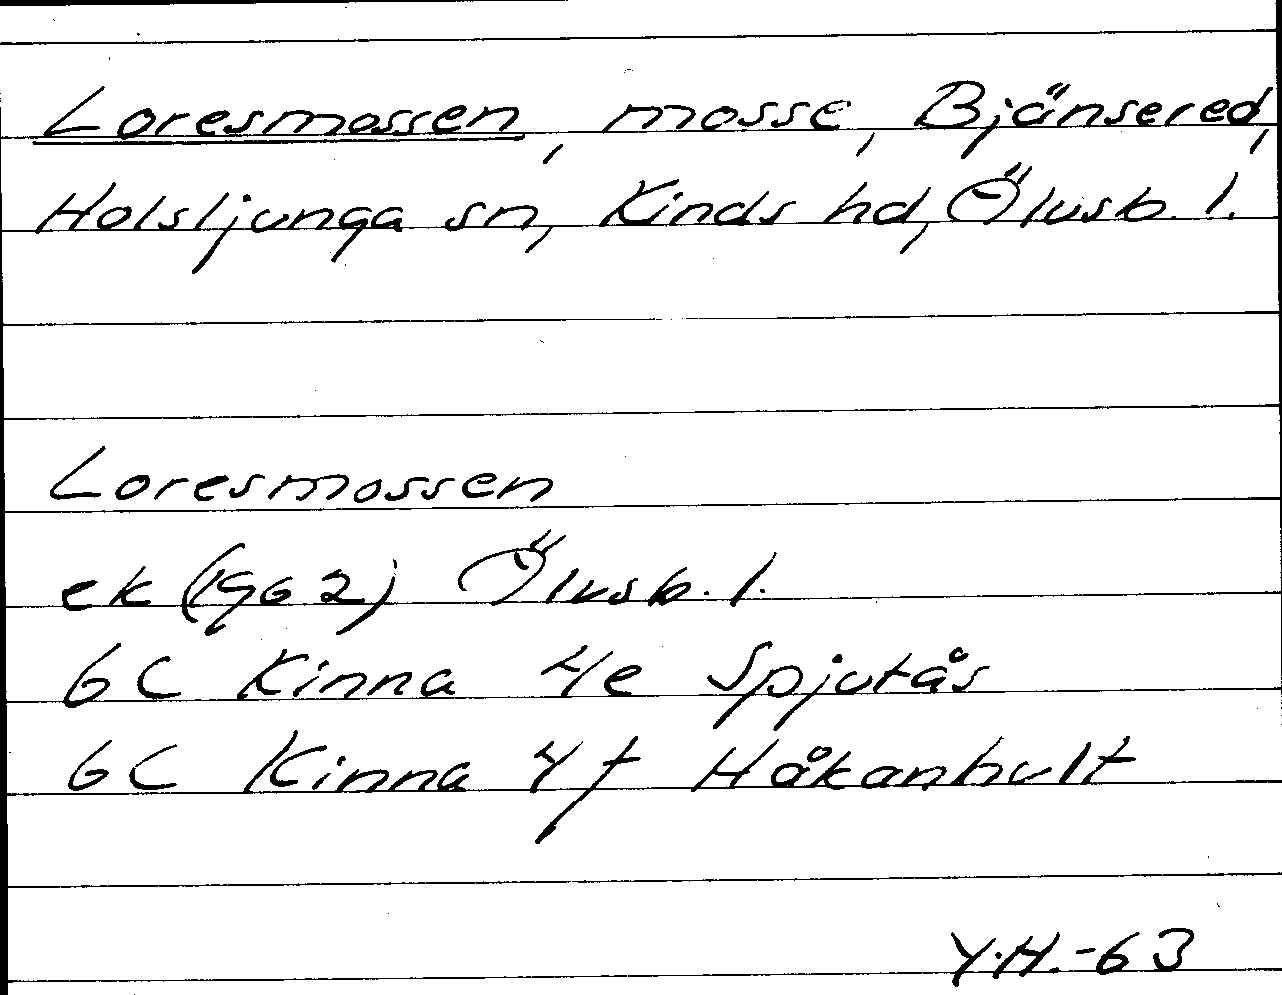 Loresmossen, mosse, Bjänsered,
Holsljunga sn, Kinds hd, Älvsb. l.
Loresmossen
ek (1962) Älvsb. l.
6C Kinna 4e Spjutås
6C Kinna 4f Håkanhult
Y.H.-63